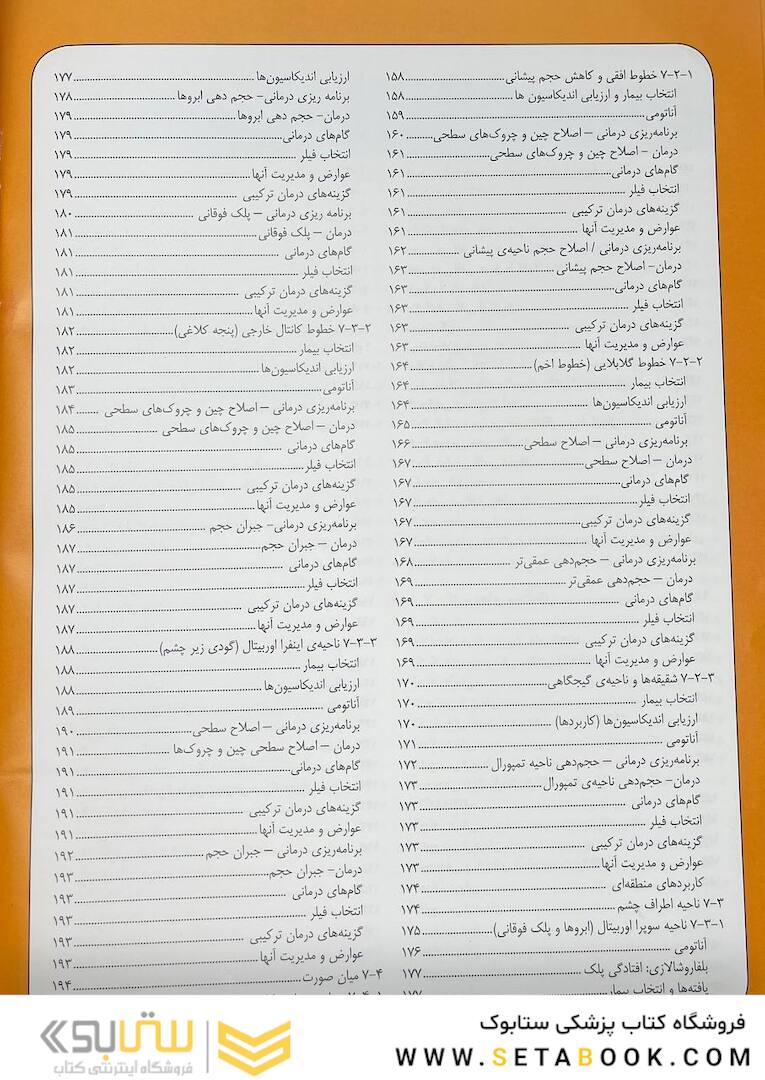 ۷-۲-۱ خطوط افقی و کاهش حجم پیشانی ۱۵۸
انتخاب بیمار و ارزیابی اندیکاسیون ها ۱۵۸
آناتومی ۱۵۹
برنامه‌ریزی درمانی – اصلاح چین و چروک‌های سطحی ۱۶۰
درمان - اصلاح چین و چروک‌های سطحی ۱۶۱
گام‌های درمانی ۱۶۱
انتخاب فیلر ۱۶۱
گزینه‌های درمان ترکیبی ۱۶۱
عوارض و مدیریت آنها ۱۶۱
برنامه‌ریزی درمانی / اصلاح حجم ناحیه‌ی پیشانی ۱۶۲
درمان- اصلاح حجم پیشانی ۱۶۳
گام‌های درمانی ۱۶۳
انتخاب فیلر ۱۶۳
گزینه‌های درمان ترکیبی ۱۶۳
عوارض و مدیریت آنها ۱۶۳
۷-۲-۲ خطوط گلابلایی (خطوط اخم) ۱۶۴
انتخاب بیمار ۱۶۴
ارزیابی اندیکاسیون‌ها ۱۶۴
آناتومی ۱۶۵
برنامه‌ریزی درمانی – اصلاح سطحی ۱۶۶
درمان – اصلاح سطحی ۱۶۷
گام‌های درمانی ۱۶۷
انتخاب فیلر ۱۶۷
گزینه‌های درمان ترکیبی ۱۶۷
عوارض و مدیریت آنها ۱۶۷
برنامه‌ریزی درمانی – حجم‌دهی عمقی‌تر ۱۶۸
درمان – حجم‌دهی عمقی‌تر ۱۶۹
گام‌های درمانی ۱۶۹
انتخاب فیلر ۱۶۹
گزینه‌های درمان ترکیبی ۱۶۹
عوارض و مدیریت آنها ۱۶۹
۷-۲-۳ شقیقه‌ها و ناحیه‌ی گیجگاهی ۱۷۰
انتخاب بیمار ۱۷۰
ارزیابی اندیکاسیون‌ها (کاربردها) ۱۷۰
آناتومی ۱۷۱
برنامه‌ریزی درمانی – حجم‌دهی ناحیه تمپورال ۱۷۲
درمان- حجم‌دهی ناحیه‌ی تمپورال ۱۷۳
گام‌های درمانی ۱۷۳
انتخاب فیلر ۱۷۳
گزینه‌های درمان ترکیبی ۱۷۳
عوارض و مدیریت آنها ۱۷۳
کاربردهای منطقه‌ای ۱۷۴
۷-۳ ناحیه اطراف چشم ۱۷۴
۷-۳-۱ ناحیه سوپرا اوربیتال (ابروها و پلک فوقانی) ۱۷۵
آناتومی ۱۷۶
بلفاروشالازی: افتادگی پلک ۱۷۷
یافته‌ها و انتخاب بیمار ۱۷۷
ارزیابی اندیکاسیون‌ها ۱۷۷
برنامه ریزی درمانی- حجم دهی ابروها ۱۷۸
درمان- حجم دهی ابروها ۱۷۹
گام‌های درمانی ۱۷۹
انتخاب فیلر ۱۷۹
عوارض و مدیریت آنها ۱۷۹
گزینه‌های درمان ترکیبی ۱۷۹
برنامه ریزی درمانی – پلک فوقانی ۱۸۰
درمان – پلک فوقانی ۱۸۱
گام‌های درمانی ۱۸۱
انتخاب فیلر ۱۸۱
گزینه‌های درمان ترکیبی ۱۸۱
عوارض و مدیریت آنها ۱۸۱
۷-۳-۲ خطوط کانتال خارجی (پنجه کلاغی) ۱۸۲
انتخاب بیمار ۱۸۲
ارزیابی اندیکاسیون‌ها ۱۸۲
آناتومی ۱۸۳
برنامه‌ریزی درمانی – اصلاح چین و چروک‌های سطحی ۱۸۴
درمان – اصلاح چین و چروک‌های سطحی ۱۸۵
گام‌های درمانی ۱۸۵
انتخاب فیلر ۱۸۵
گزینه‌های درمان ترکیبی ۱۸۵
عوارض و مدیریت آنها ۱۸۵
برنامه‌ریزی درمانی- جبران حجم ۱۸۶
درمان – جبران حجم ۱۸۷
گام‌های درمانی ۱۸۷
انتخاب فیلر ۱۸۷
گزینه‌های درمان ترکیبی ۱۸۷
عوارض و مدیریت آنها ۱۸۷
۷-۳-۳ ناحیه‌ی اینفرا اوربیتال (گودی زیر چشم) ۱۸۸
انتخاب بیمار ۱۸۸
ارزیابی اندیکاسیون‌ها ۱۸۸
آناتومی ۱۸۹
برنامه‌ریزی درمانی – اصلاح سطحی ۱۹۰
درمان – اصلاح سطحی چین و چروک‌ها ۱۹۱
گام‌های درمانی ۱۹۱
انتخاب فیلر ۱۹۱
گزینه‌های درمان ترکیبی ۱۹۱
عوارض و مدیریت آنها ۱۹۱
برنامه‌ریزی درمانی – جبران حجم ۱۹۲
درمان- جبران حجم ۱۹۳
گام‌های درمانی ۱۹۳
انتخاب فیلر ۱۹۳
گزینه‌های درمان ترکیبی ۱۹۳
عوارض و مدیریت آنها ۱۹۳
۷-۴ میان صورت ۱۹۴
فروشگاه کتاب پزشکی ستابوک
WWW.SETABOOK.COM
ستابوک
فروشگاه اینترنتی کتاب